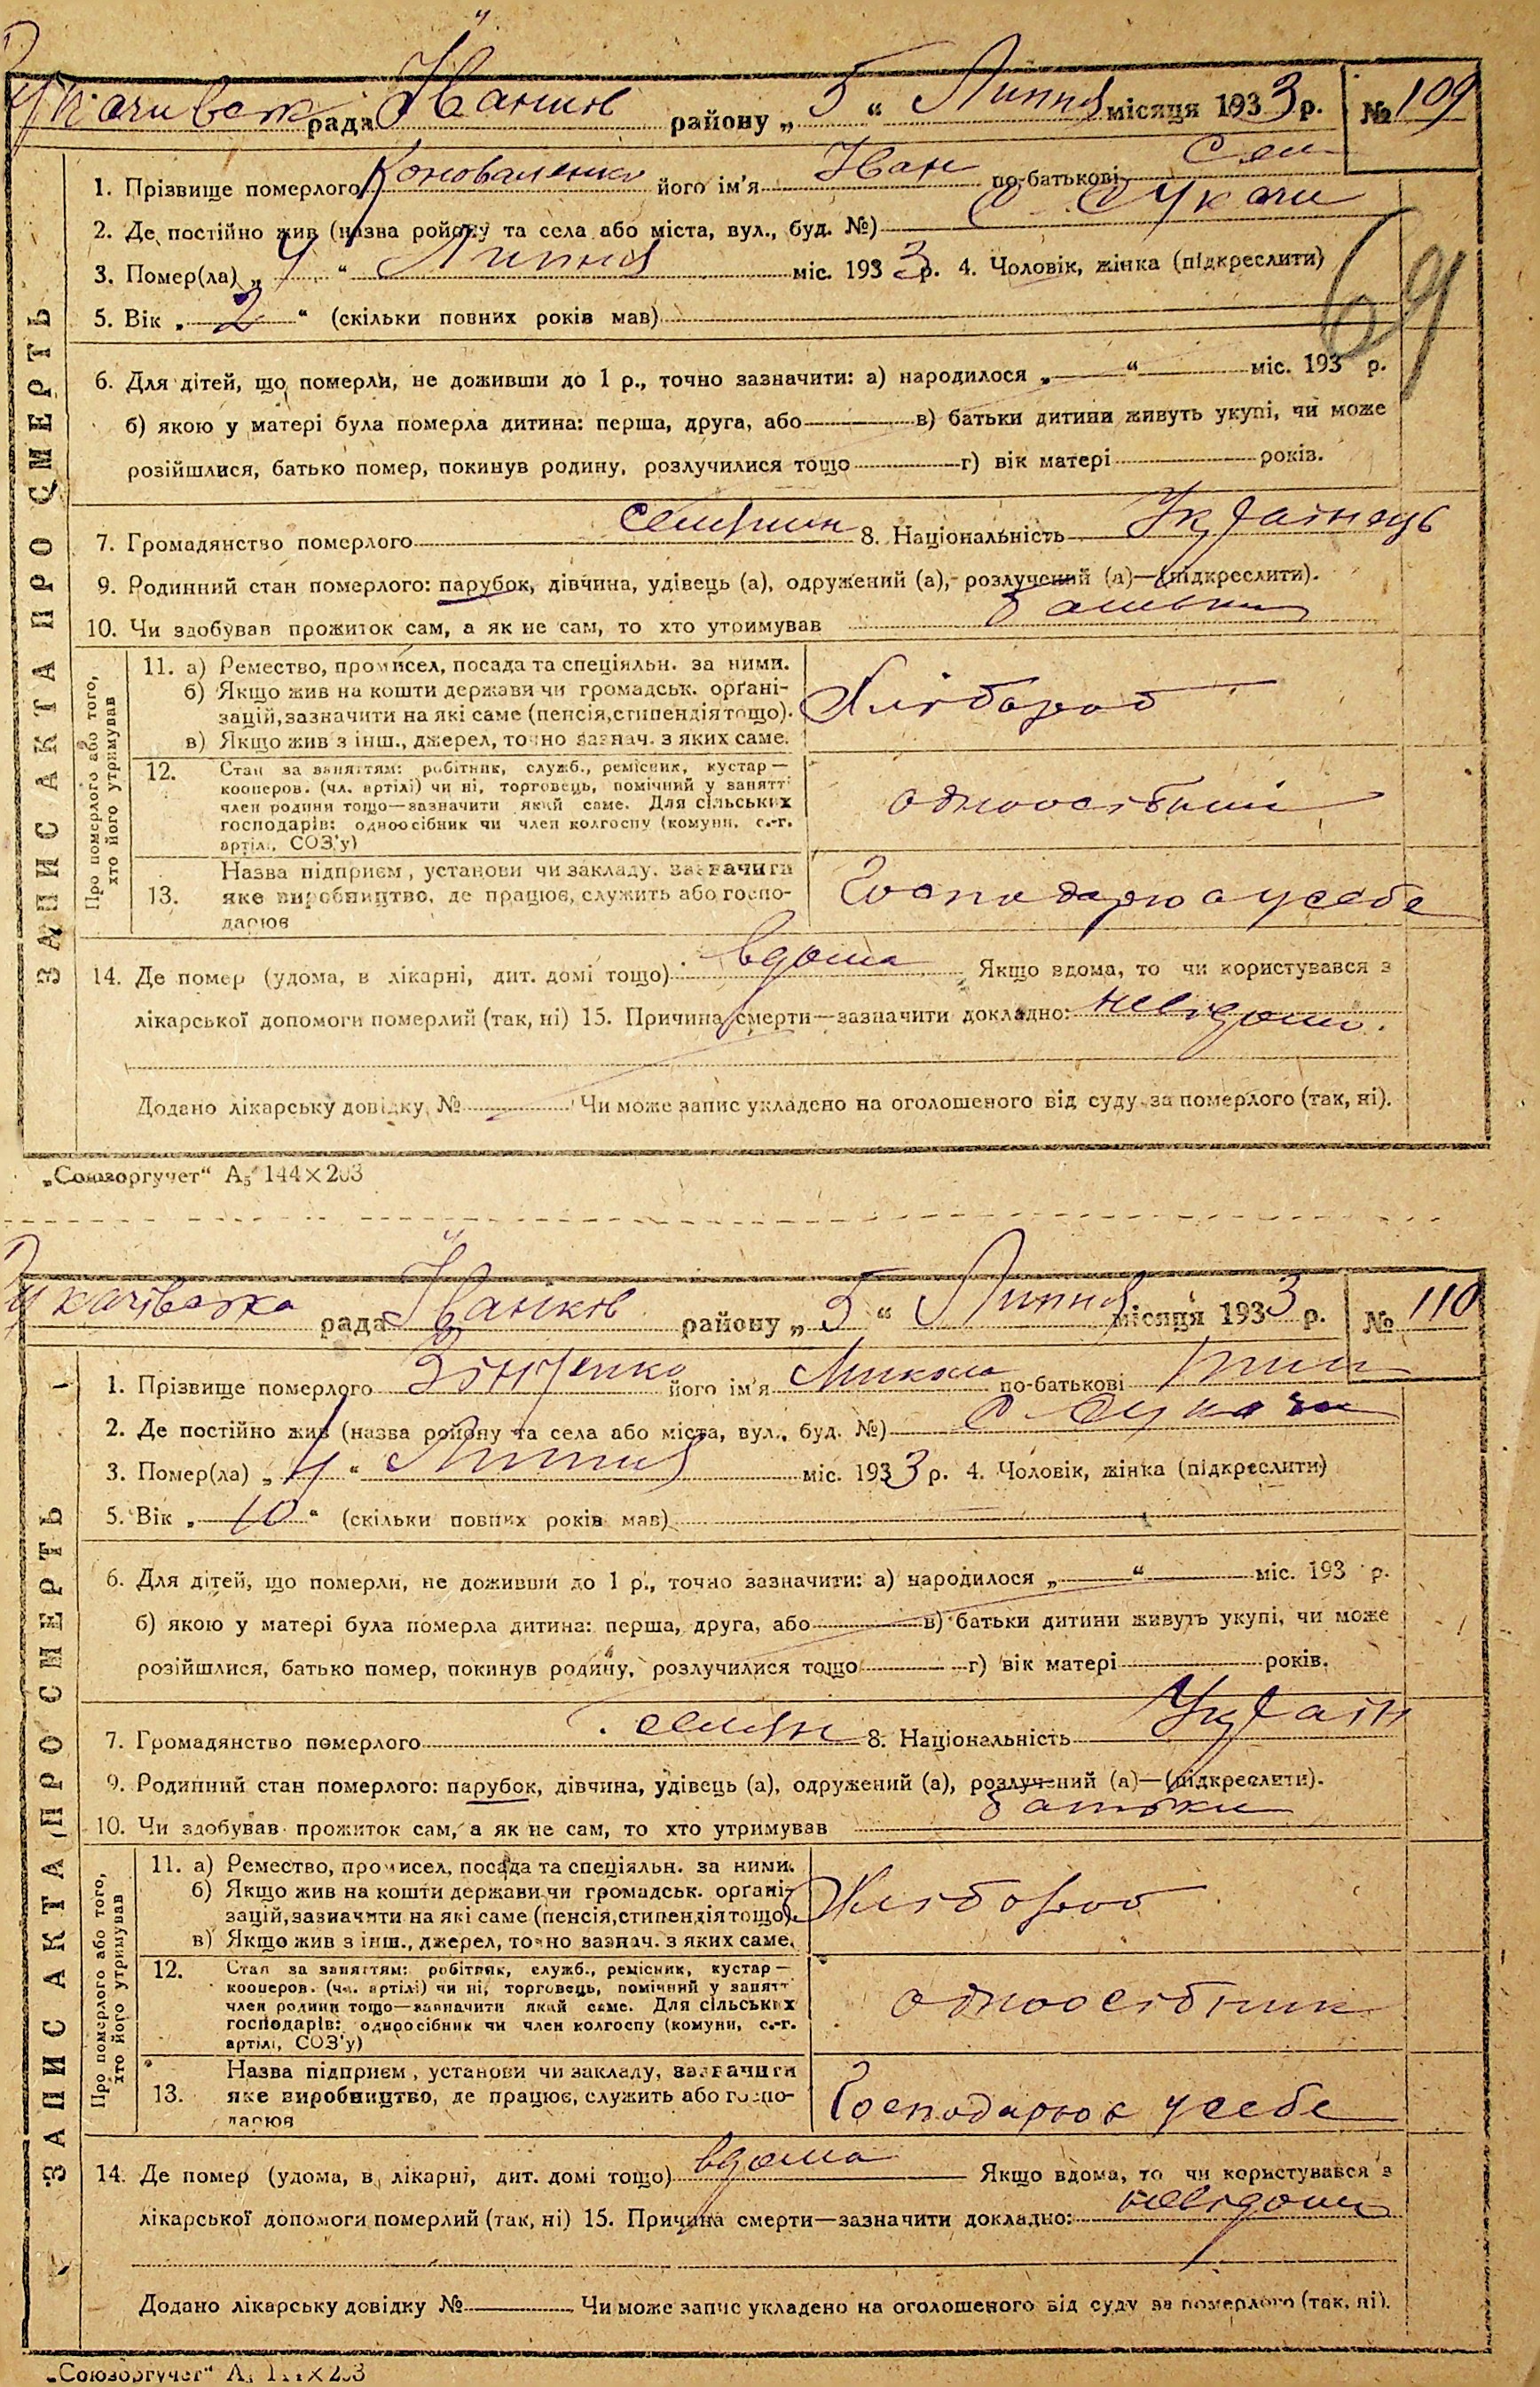 рада Іванків району „ 5 “ Липня місяця 1933 р. № 109
1. Прізвище померлого Коноваленко його ім'я Іван по-батькові Сем
2. Де постійно жив (назва ройону та села або міста, вул., буд. №) с. Сукачи
3. Помер(ла) „ 4 “ Липня міс. 1933 р. 4. Чоловік, жінка (підкреслити)
5. Вік „ 2 “ (скільки повних років мав)
69
6. Для дітей, що померли, не доживши до 1 р., точно зазначити: а) народилося „ “ міс. 193 р.
б) якою у матері була померла дитина: перша, друга, або в) батьки дитини живуть укупі, чи може
розійшлися, батько помер, покинув родину, розлучилися тощо г) вік матері років.
7. Громадянство померлого селянин 8. Національність Українець
9. Родинний стан померлого: парубок, дівчина, удівець (а), одружений (а), розлучений (а)—(підкреслити).
10. Чи здобував прожиток сам, а як не сам, то хто утримував батьки
ЗАПИС АКТА ПРО СМЕРТЬ
Про померлого або того,
хто його утримував
11. а) Ремество, промисел, посада та спеціяльн. за ними.
б) Якщо жив на кошти держави чи громадськ. орґані-
зацій, зазначити на які саме (пенсія, стипендія тощо).
в) Якщо жив з інш., джерел, точно зазнач. з яких саме.
Хлібороб
12. Стан за заняттям: робітник, служб., ремісник, кустар—
кооперов. (чл. артілі) чи ні, торговець, помічний у занятті
член родини тощо—зазначити який саме. Для сільських
господарів: одноосібник чи член колгоспу (комуни, с.-г.
артілі, СОЗ'у)
13. Назва підприєм, установи чи закладу, зазначити
яке виробництво, де працює, служить або госпо-
дарює
Господарює у себе
14. Де помер (удома, в лікарні, дит. домі тощо) вдома Якщо вдома, то чи користувався з
лікарської допомоги померлий (так, ні) 15. Причина смерти—зазначити докладно: невідомо.
Додано лікарську довідку № Чи може запис укладено на оголошеного від суду за померлого (так, ні).
„Союзоргучет“ А5 144×203
рада Іванків району „ 5 “ Липня місяця 1933 р. № 110
1. Прізвище померлого Зінченко його ім'я Микола по-батькові
2. Де постійно жив (назва ройону та села або міста, вул., буд. №) с. Сукачи
3. Помер(ла) „ 4 “ Липня міс. 1933 р. 4. Чоловік, жінка (підкреслити)
5. Вік „ 10 “ (скільки повних років мав)
6. Для дітей, що померли, не доживши до 1 р., точно зазначити: а) народилося „ “ міс. 193 р.
б) якою у матері була померла дитина: перша, друга, або в) батьки дитини живуть укупі, чи може
розійшлися, батько помер, покинув родину, розлучилися тощо г) вік матері років.
7. Громадянство померлого селян 8. Національність Україн
9. Родинний стан померлого: парубок, дівчина, удівець (а), одружений (а), розлучений (а)—(підкреслити).
10. Чи здобував прожиток сам, а як не сам, то хто утримував батьки
ЗАПИС АКТА ПРО СМЕРТЬ
Про померлого або того,
хто його утримував
11. а) Ремество, промисел, посада та спеціяльн. за ними.
б) Якщо жив на кошти держави чи громадськ. орґані-
зацій, зазначити на які саме (пенсія, стипендія тощо).
в) Якщо жив з інш., джерел, точно зазнач. з яких саме.
Хлібороб
12. Стан за заняттям: робітник, служб., ремісник, кустар—
кооперов. (чл. артілі) чи ні, торговець, помічний у занятт
член родини тощо—зазначити який саме. Для сільських
господарів: одноосібник чи член колгоспу (комуни, с.-г.
артілі, СОЗ'у)
одноосібник
13. Назва підприєм, установи чи закладу, зазначити
яке виробництво, де працює, служить або госпо-
дарює
Господарює у себе
14. Де помер (удома, в лікарні, дит. домі тощо) вдома Якщо вдома, то чи користувався з
лікарської допомоги померлий (так, ні) 15. Причина смерти—зазначити докладно: невідомо
Додано лікарську довідку № Чи може запис укладено на оголошеного від суду за померлого (так, ні).
„Союзоргучет“ А5 144×203